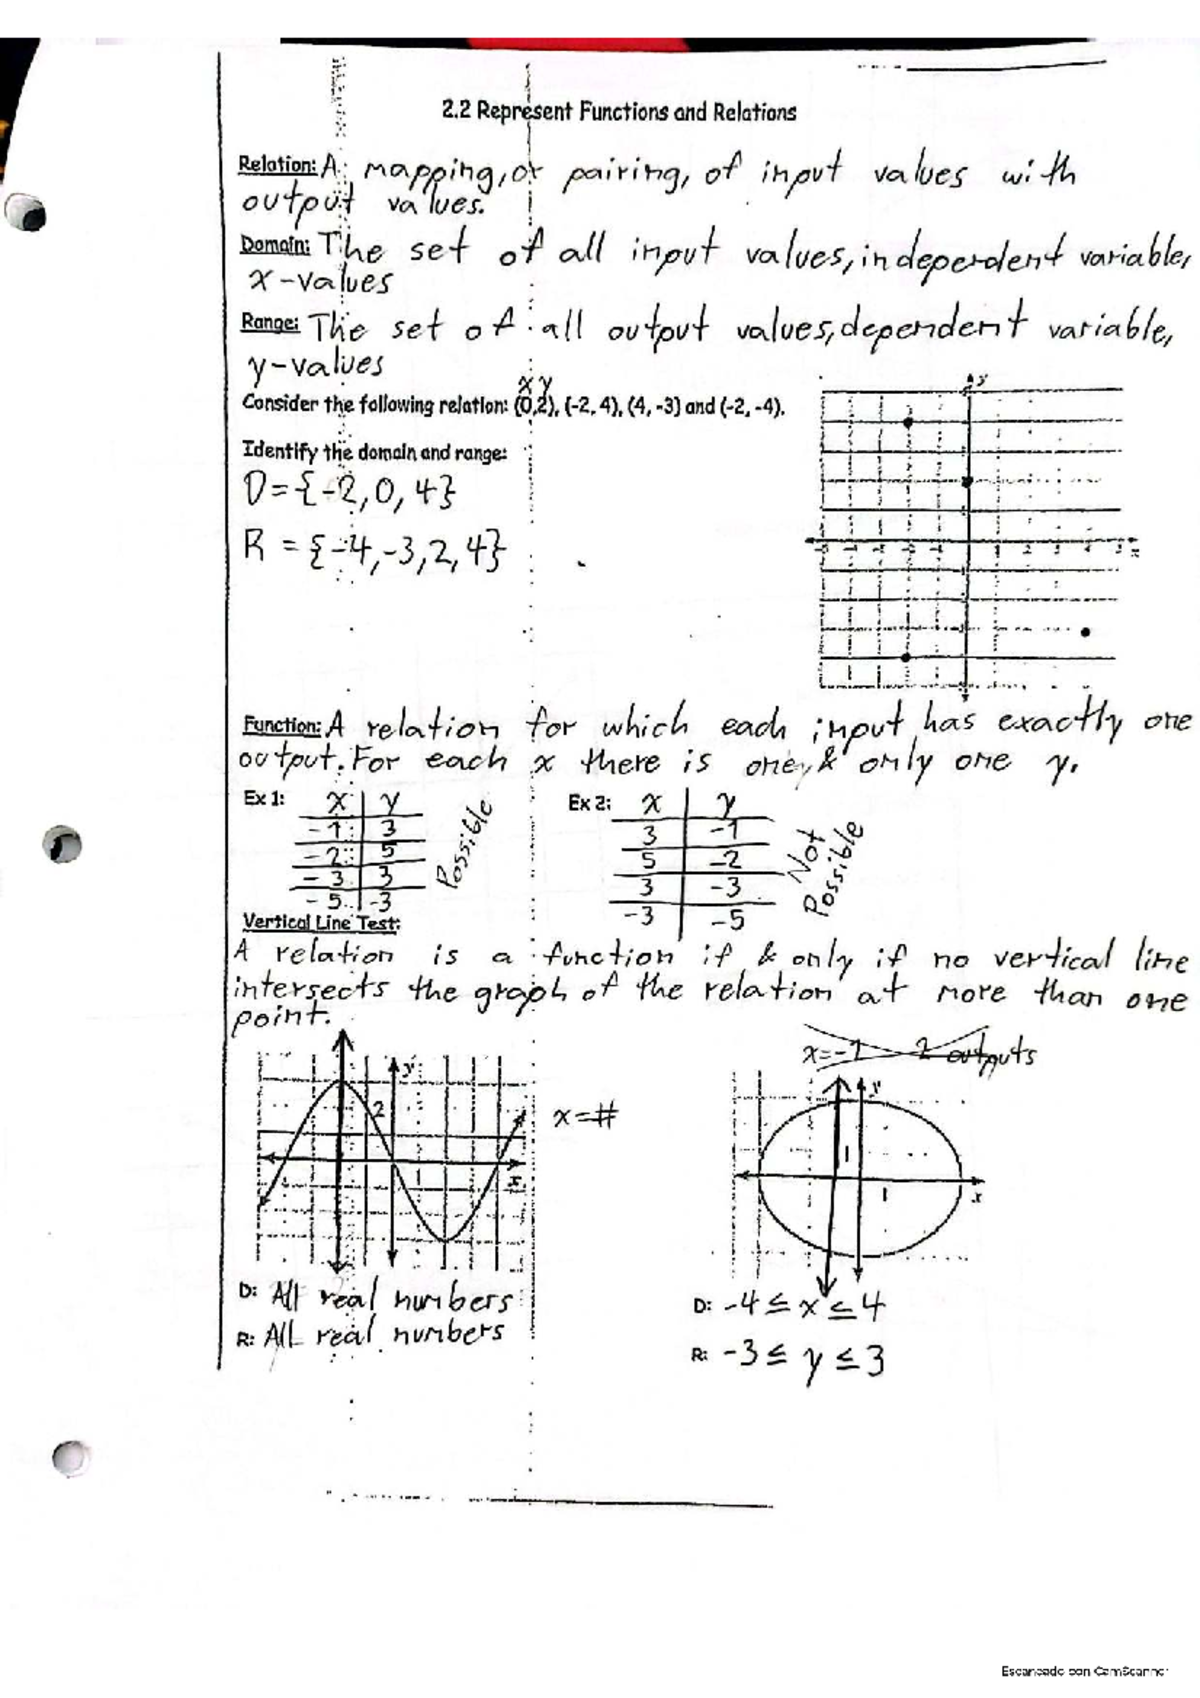 2.2 Represent Functions and Relations
Relation: A mapping, or pairing, of input values with
output values.
Domain: The set of all input values, independent variable,
x-values
Range: The set of all output values, dependent variable,
y-values
x y
Consider the following relation: (0,2), (-2, 4), (4, -3) and (-2, -4).
Identify the domain and range:
D = {-2, 0, 4}
R = {-4, -3, 2, 4}
Function: A relation for which each input has exactly one
output. For each x there is one, & only one y.
Ex 1: x y
-1 3
-2 5
-3 3
-5 -3
Possible
Ex 2: x y
3 -1
5 -2
3 -3
-3 -5
Not
Possible
Vertical Line Test:
A relation is a function if & only if no vertical line
intersects the graph of the relation at more than one
point.
y
2
1
x
x=#
x=-1 2 outputs
y
1
1
x
D: All real numbers
R: All real numbers
D: -4 ≤ x ≤ 4
R: -3 ≤ y ≤ 3
Escaneado con CamScanner